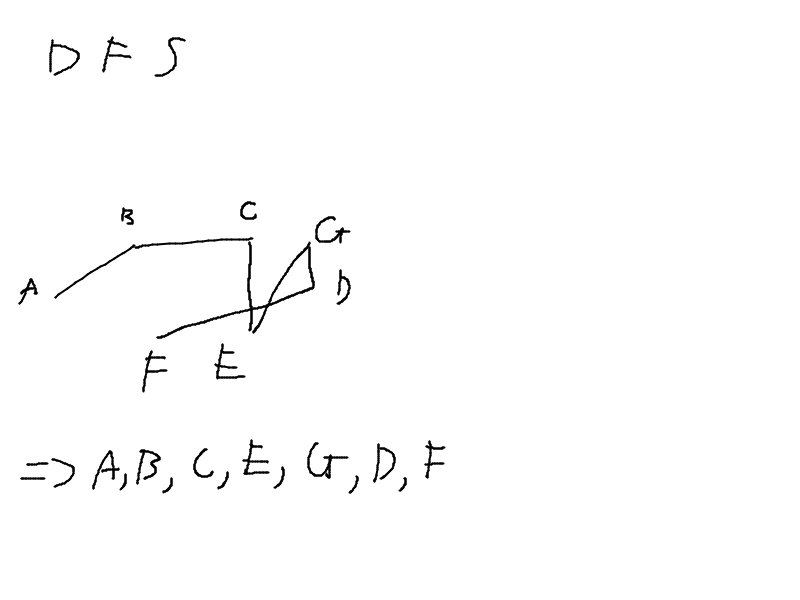 DFS
B
C
G
A
D
F
E
=> A, B, C, E, G, D, F